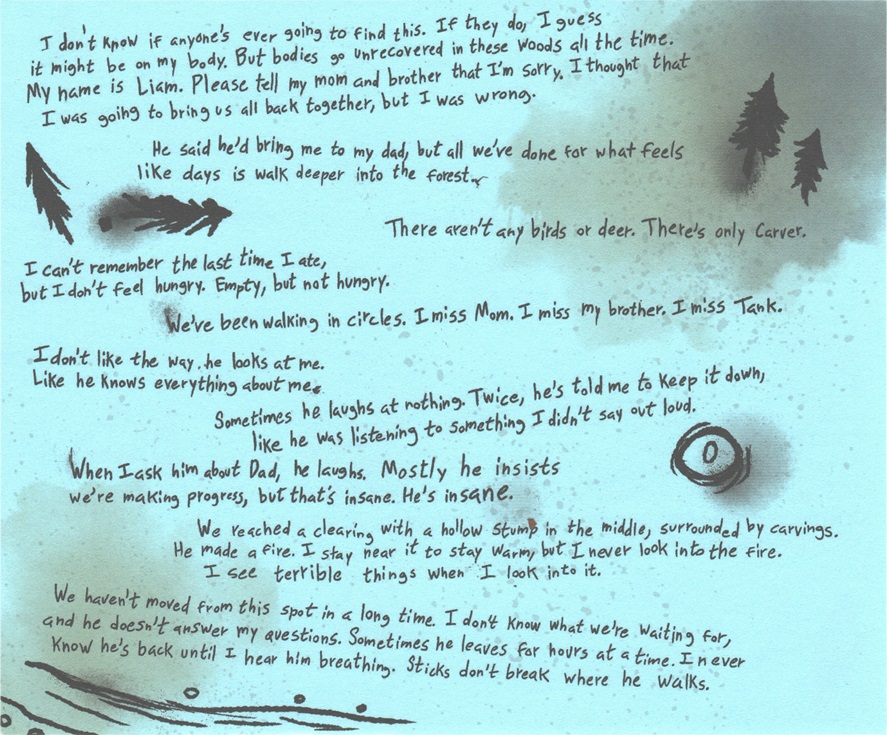 I don't know if anyone's ever going to find this. If they do, I guess
it might be on my body. But bodies go unrecovered in these woods all the time.
My name is Liam. Please tell my mom and brother that I'm sorry. I thought that
I was going to bring us all back together, but I was wrong.
He said he'd bring me to my dad, but all we've done for what feels
like days is walk deeper into the forest.
There aren't any birds or deer. There's only Carver.
I can't remember the last time I ate,
but I don't feel hungry. Empty, but not hungry.
We've been walking in circles. I miss Mom. I miss my brother. I miss Tank.
I don't like the way he looks at me.
Like he knows everything about me.
Sometimes he laughs at nothing. Twice, he's told me to keep it down,
like he was listening to something I didn't say out loud.
When I ask him about Dad, he laughs. Mostly he insists
we're making progress, but that's insane. He's insane.
We reached a clearing with a hollow stump in the middle, surrounded by carvings.
He made a fire. I stay near it to stay warm, but I never look into the fire.
I see terrible things when I look into it.
We haven't moved from this spot in a long time. I don't know what we're waiting for,
and he doesn't answer my questions. Sometimes he leaves for hours at a time. I never
know he's back until I hear him breathing. Sticks don't break where he walks.